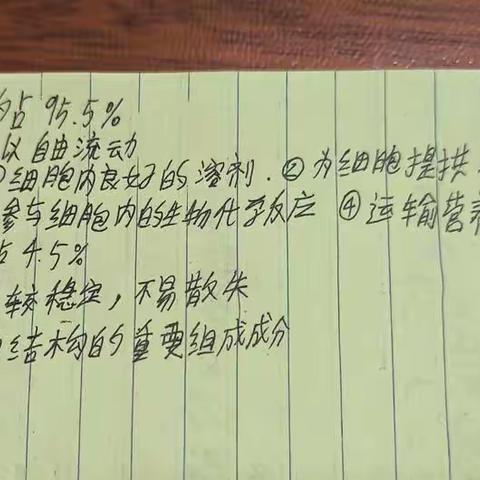 约占 95.5%
以自由流动
①细胞内良好的溶剂.②为细胞提拱
参与细胞内的生物化学反应 ④运输营养
占 4.5%
较稳定，不易散失
结构的重要组成成分